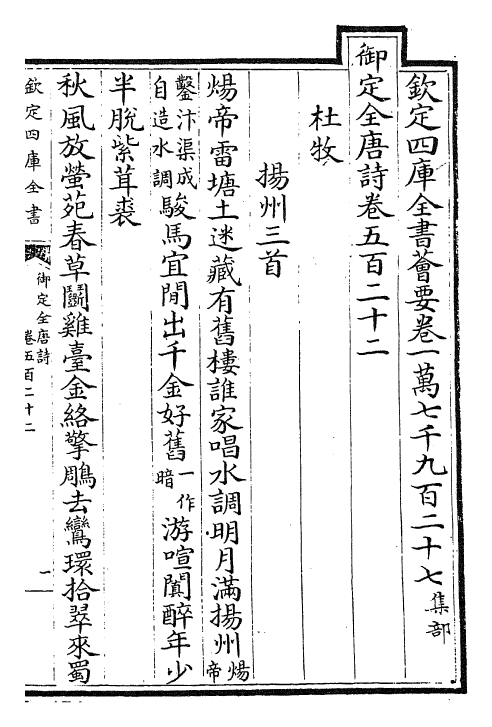 欽定四庫全書薈要卷一萬七千九百二十七集部
御定全唐詩卷五百二十二
杜牧
揚州三首
煬帝雷塘土迷藏有舊樓誰家唱水調明月滿揚州煬帝
鑿汴渠成自造水調駿馬宜閒出千金好舊一作暗游喧闐醉年少
半脫紫茸裘
秋風放螢苑春草鬭雞臺金絡擎鵰去鸞環拾翠來蜀
欽定四庫全書
御定全唐詩
卷五百二十二
一